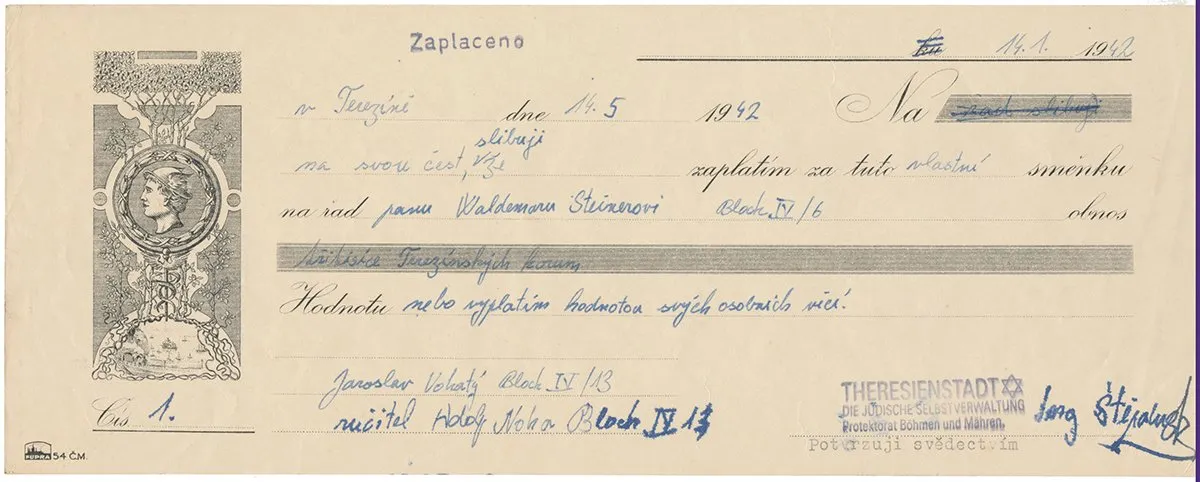 Zaplaceno
14.1. 1942
v Terezíně dne 14.5 1942 Na řad slibuji
slibuji
na svou čest, že zaplatím za tuto vlastní směnku
na řad panu Waldemaru Steinerovi Block IV/6 obnos
Terezínských korun
Hodnotu nebo vyplatím hodnotou svých osobních věcí.
Jaroslav Vokatý Block IV/13
Čís 1.
ručitel Adolf Noha Block IV 13
THERESIENSTADT
DIE JÜDISCHE SELBSTVERWALTUNG
Protektorat Böhmen und Mähren.
Potvrzuji svědectvím
PUPRA 54 Č.M.